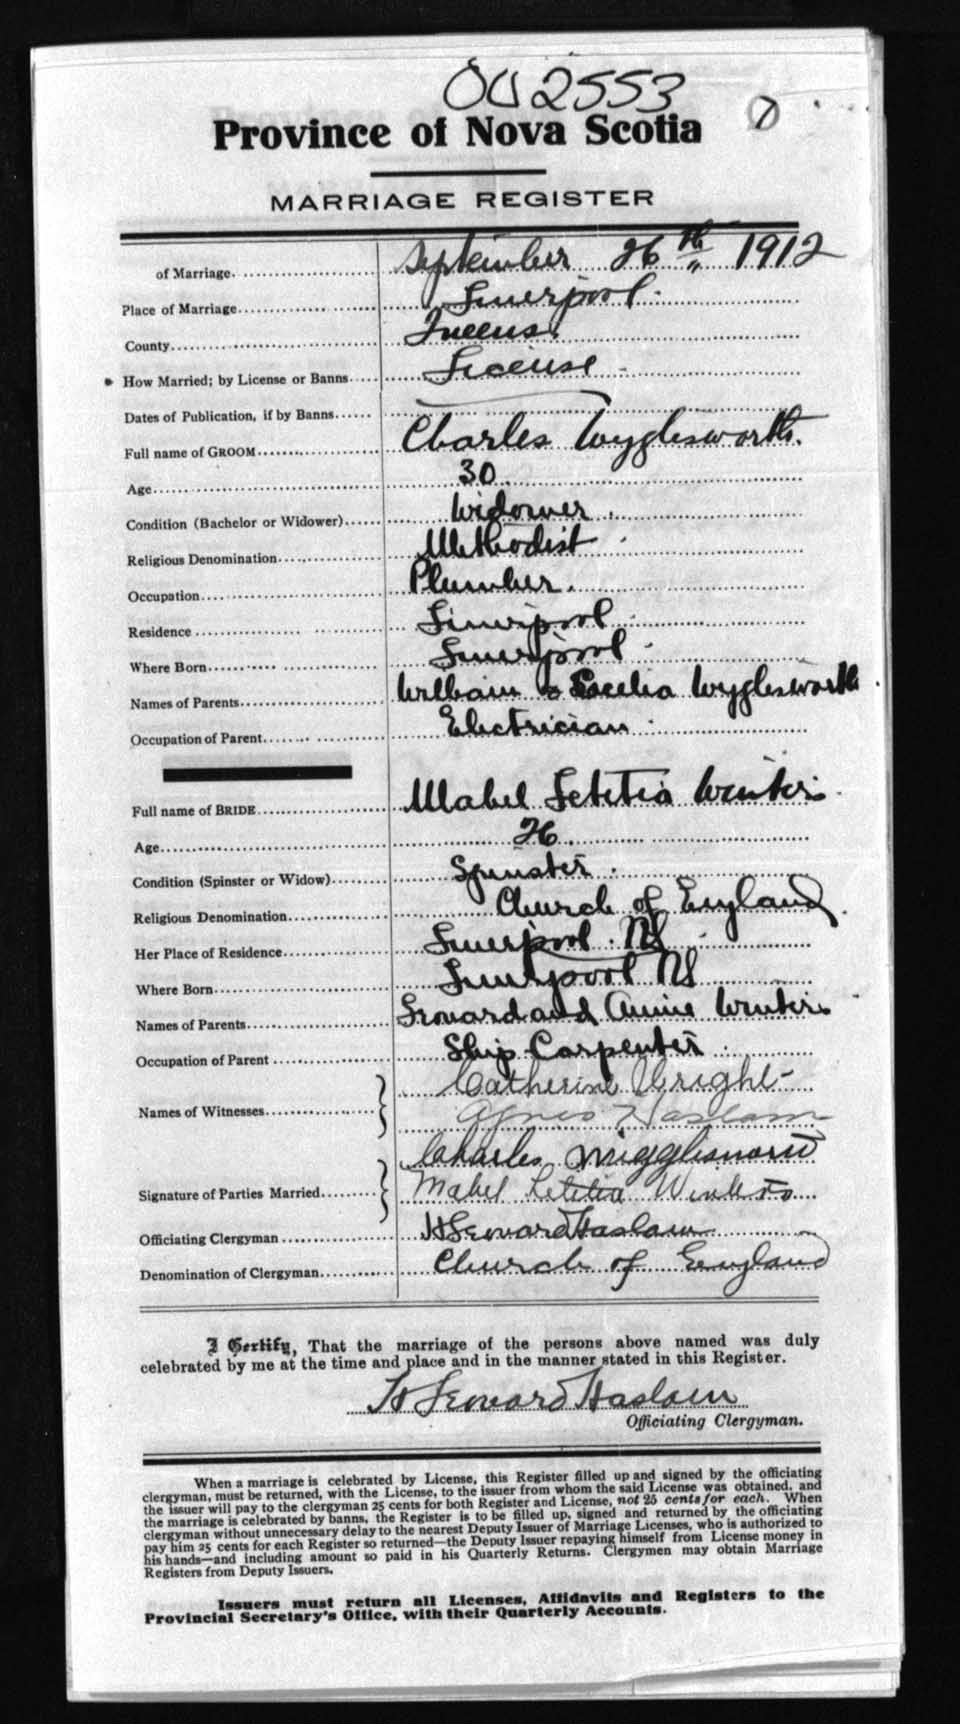 002553
Province of Nova Scotia
MARRIAGE REGISTER
of Marriage. September 26th 1912
Place of Marriage Liverpool
County Queens
How Married; by License or Banns License
Dates of Publication, if by Banns
Full name of GROOM Charles Wyglesworth.
Age 30
Condition (Bachelor or Widower) Widower
Religious Denomination Methodist
Occupation Plumber.
Residence Liverpool
Where Born Liverpool
Names of Parents William & Wyglesworth
Occupation of Parent Electrician
Full name of BRIDE Mabel Letetia Winters
Age 26
Condition (Spinster or Widow) Spinster
Religious Denomination Church of England
Her Place of Residence Liverpool. NS
Where Born Liverpool NS
Names of Parents Leonard and Annie Winters
Occupation of Parent Ship Carpenter
Names of Witnesses Catherine Wright
Agnes Haslam
Charles Wigglesworth
Signature of Parties Married Mabel Letitia Winters
Officiating Clergyman H Leonard Haslam
Denomination of Clergyman Church of England
I Certify, That the marriage of the persons above named was duly
celebrated by me at the time and place and in the manner stated in this Register.
H Leonard Haslam
Officiating Clergyman.
When a marriage is celebrated by License, this Register filled up and signed by the officiating
clergyman, must be returned, with the License, to the issuer from whom the said License was obtained, and
the issuer will pay to the clergyman 25 cents for both Register and License, not 25 cents for each. When
the marriage is celebrated by banns, the Register is to be filled up, signed and returned by the officiating
clergyman without unnecessary delay to the nearest Deputy Issuer of Marriage Licenses, who is authorized to
pay him 25 cents for each Register so returned—the Deputy Issuer repaying himself from License money in
his hands—and including amount so paid in his Quarterly Returns. Clergymen may obtain Marriage
Registers from Deputy Issuers.
Issuers must return all Licenses, Affidavits and Registers to the
Provincial Secretary's Office, with their Quarterly Accounts.